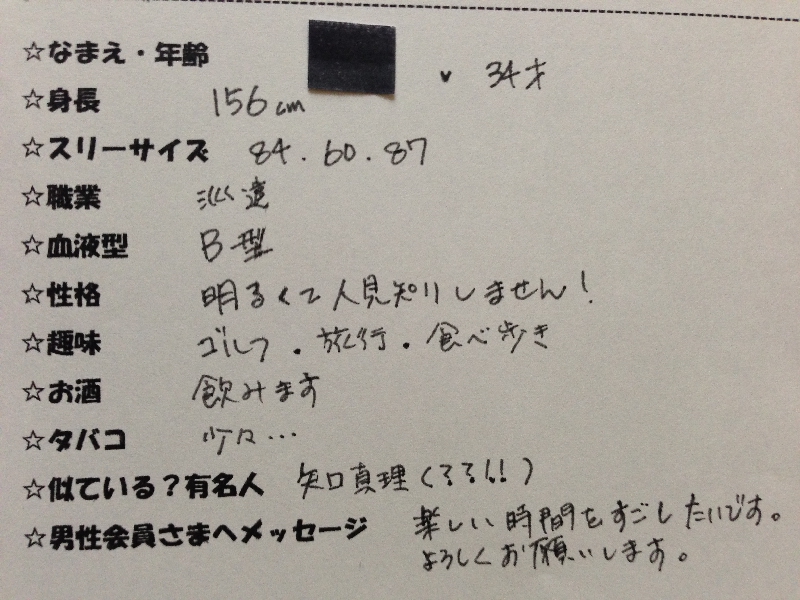 ☆なまえ・年齢 、34才
☆身長 156cm
☆スリーサイズ 84.60.87
☆職業
☆血液型 B型
☆性格 明るくて人見知りしません!
☆趣味 ゴルフ・旅行・食べ歩き
☆お酒 飲みます
☆タバコ 少々…
☆似ている?有名人 矢口真理
☆男性会員さまへメッセージ 楽しい時間をすごしたいです。
よろしくお願いします。